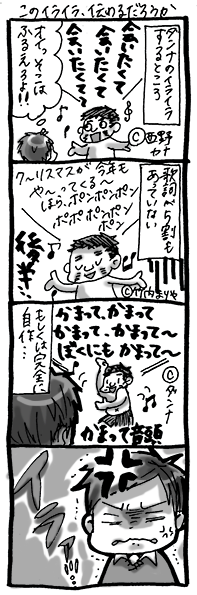 このイライラ、伝わるだろうか
ダンナのイライラ
するところ
会いたくて
会いたくて
会いたくて
©西野
カナ
オイ、そこは
ふるえろよ!!
歌詞が5割も
あっていない
ク〜リスマスが今年も
や〜ってくる〜
ほら、ポンポンポン
ポポポポンポン
ポン
後半!
©竹内まりや
かまって、かまって
かまって、かまって〜
ぼくにもかまって〜
©ダンナ
かまって音頭
もしくは完全に
自作…
イライラ…